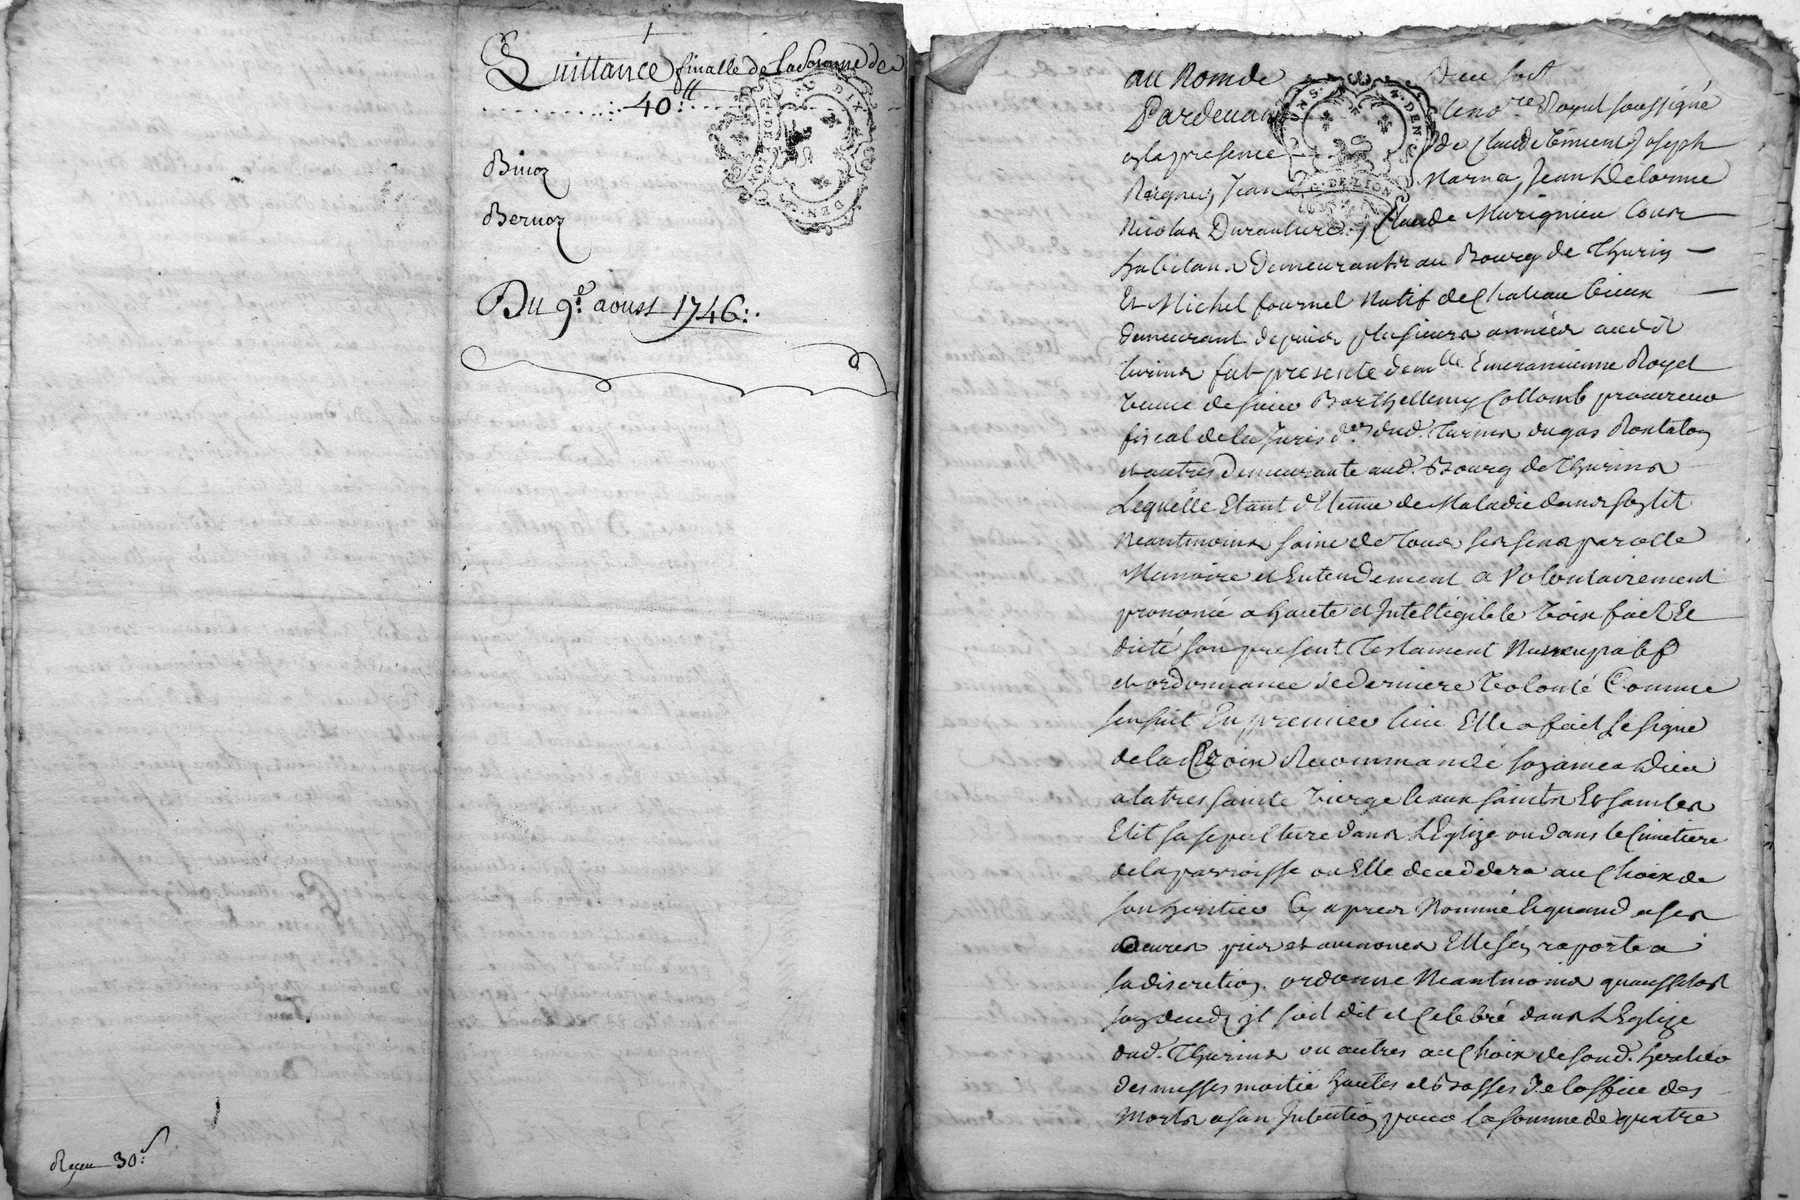 Quittance finalle de la Somme de
40 ₶
Binoz
Bernoz
Du 9e aoust 1746
Reçeu 30 s
au Nom de Dieu soit
Pardevant le no.re Royal soussigné
et la presence de Claude Clement Joseph
Jean Marna, Jean Delorme
Nicolas Claude Murignieu tous
habitans demeurants au Bourg de Thurin
Et Michel fournel Natif de Chateau Vieux
demeurant depuis plusieurs années audit
Turins fut presente dem.lle Emeranienne Royet
veuve de sieur Barthellemy Collomb procureur
fiscal de la Juris.on dud. Turins dugas Rontalon
et autres demeurante aud. Bourg de Thurins
Lequelle Etant detenue de Maladie dans son lit
Neantmoins saine de tous ses sens parolle
Memoire et Entendement a Volontairement
prononcé a haute et Intelligible voix fait Et
dicté son present Testament Nuncupatif
et ordonnance de derniere volonté Comme
sensuit En premier lieu Elle a fait Le signe
de la Croix Recommandé son ame a Dieu
a la tres sainte vierge Et aux saints Et saintes
Elit sa sepulture dans LEglize ou dans le Cimetiere
de la parroisse ou Elle deceddera au Choix de
son heritier Cy apres Nommé Et quand a ses
oeuvres pies et aumones Elle sen raporte a
sa discretion. ordonne Neantmoins quaussitot
son deceds il soit dit et Celebré dans LEglize
dud. Thurins ou autres au Choix de sond. heritier
des messes moitié hautes et Basses de loffice des
Morts a son Intention pour la somme de quatre